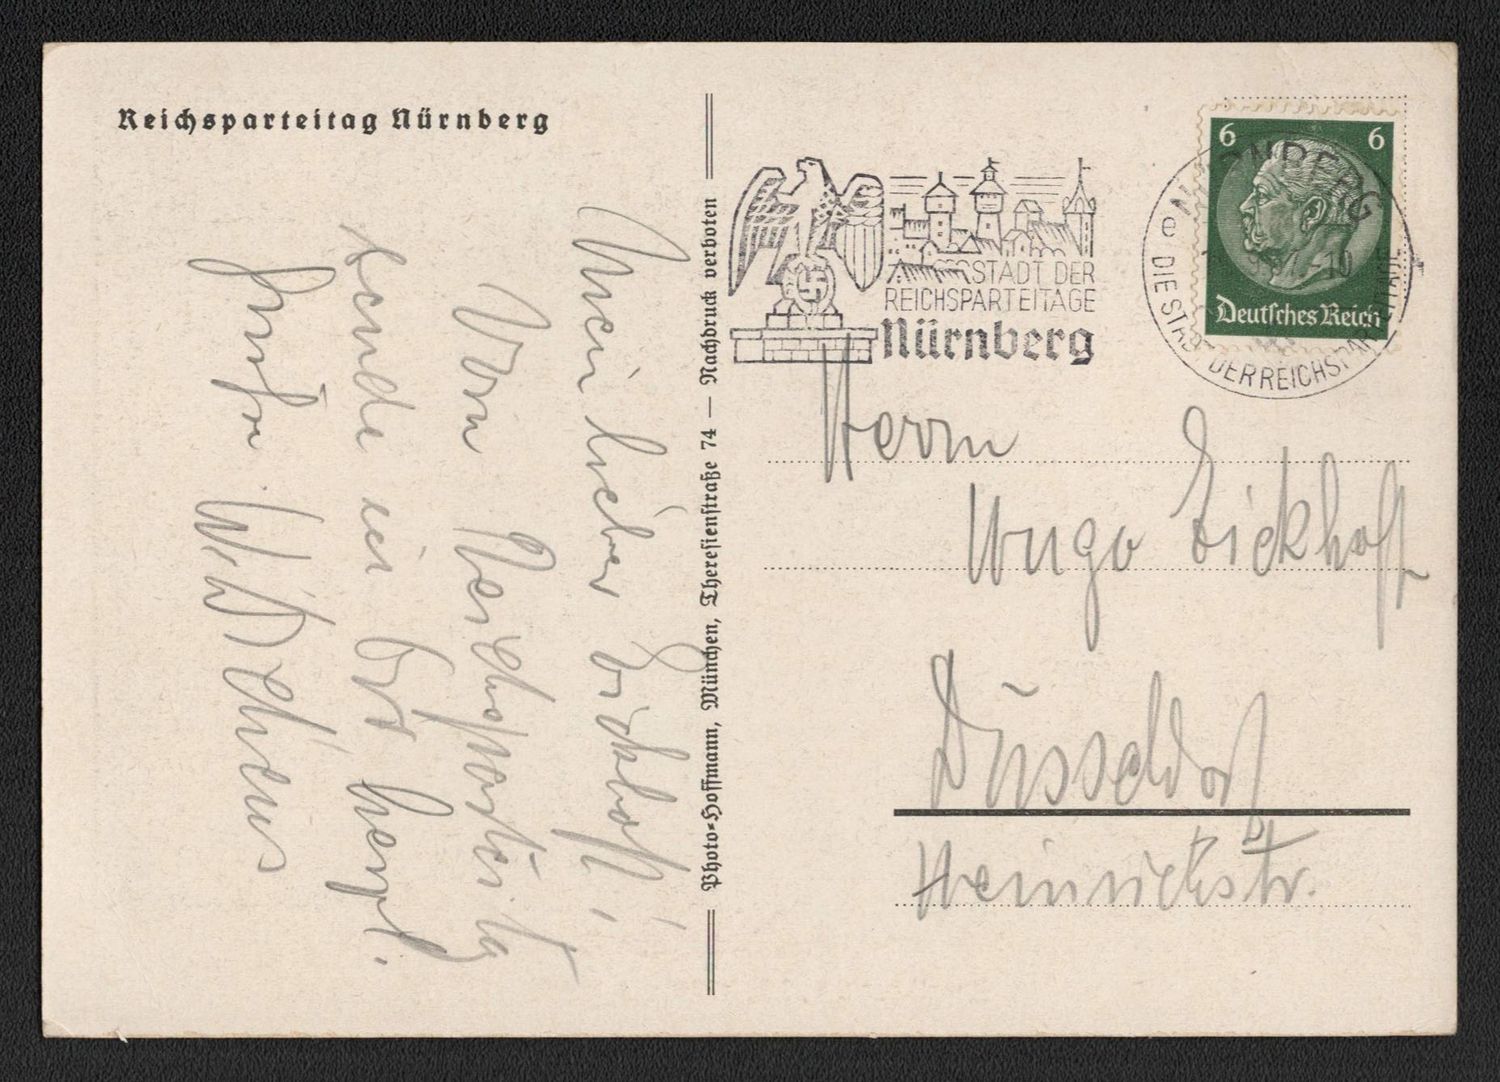 Reichsparteitag Nürnberg
Mein lieber Eickhoff!
Vom Reichsparteitag
sende ich Dir herzl.
Grüße
Photo-Hoffmann, München, Theresienstraße 74 — Nachdruck verboten
STADT DER
REICHSPARTEITAGE
Nürnberg
NÜRNBERG
e
DIE STADT DER REICHSPARTEITAGE
6 6
Deutsches Reich
Herrn
Hugo Eickhoff
Düsseldorf
Heinrichstr.